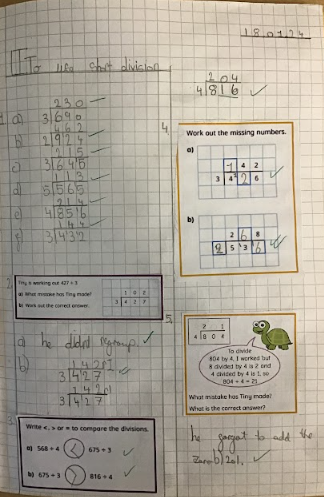 18.01.24
To use short division
204
4)816
a)
230
3)690
b)
462
2)924
c)
215
3)645
d)
113
5)565
e)
214
4)856
f)
144
3)432
4.
Work out the missing numbers.
a)
1 4 2
3 4 2 6
b)
2 6 8
2 5 3 6
2.
Tiny is working out 427 ÷ 3
a) What mistake has Tiny made?
b) Work out the correct answer.
1 0 2
3 4 2 7
a) he didnt regroup.
b)
142r1
3)427
142r1
3)427
3.
Write <, > or = to compare the divisions.
a) 568 ÷ 4 < 675 ÷ 3
b) 675 ÷ 3 > 816 ÷ 4
5.
2 1
4 8 0 4
To divide
804 by 4, I worked out
8 divided by 4 is 2 and
4 divided by 4 is 1, so
804 ÷ 4 = 21
What mistake has Tiny made?
What is the correct answer?
he forgot to add the
zero 201.